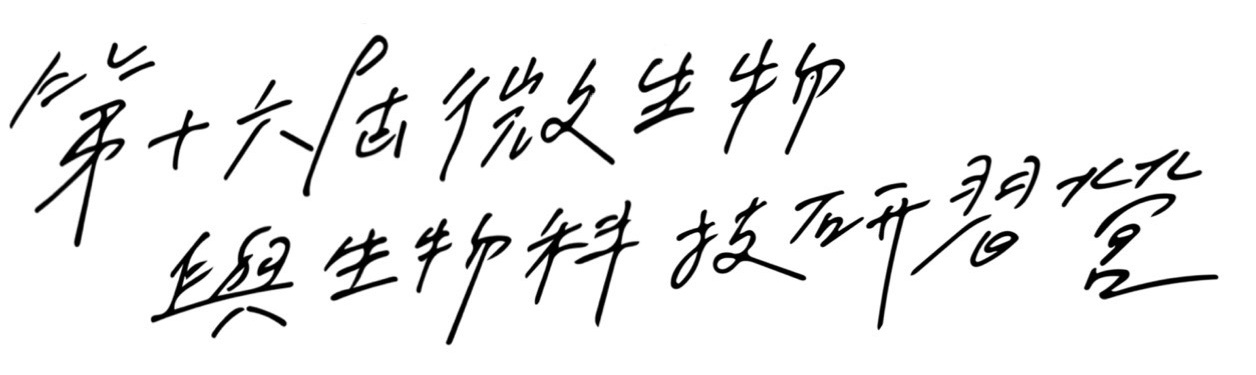 第十六屆微生物
與生物科技研習營